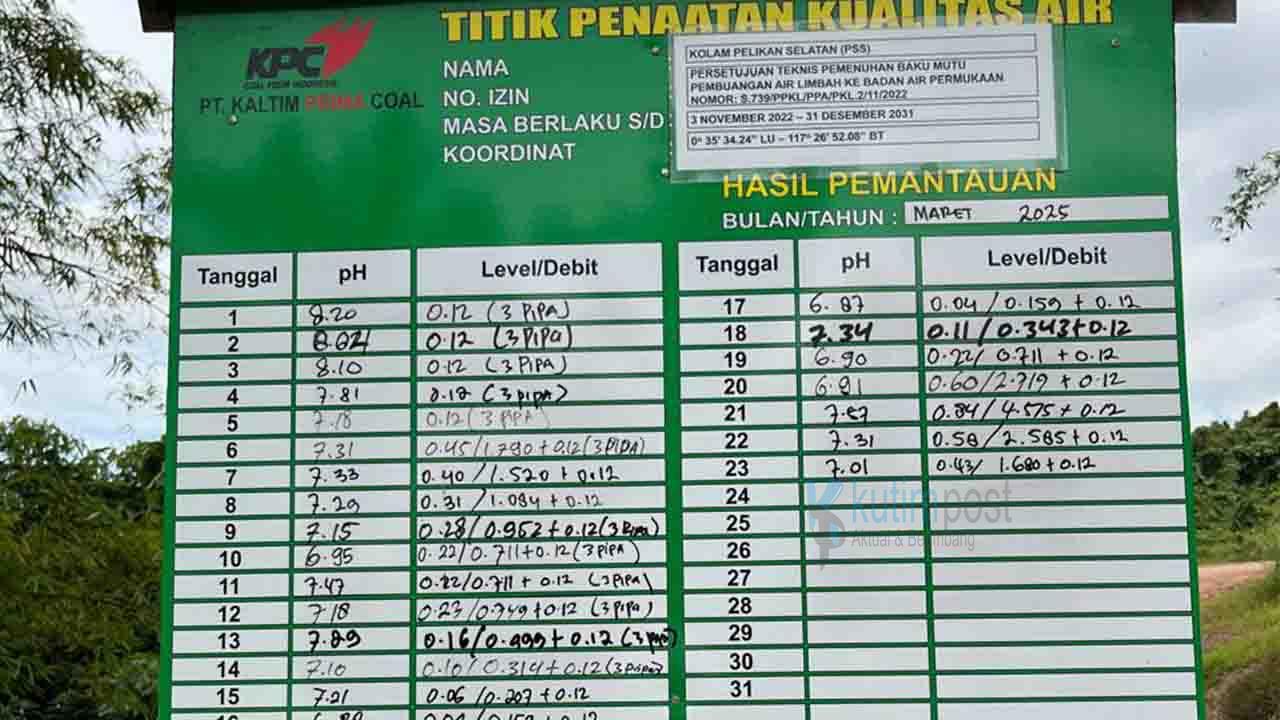 TITIK PENAATAN KUALITAS AIR
KPC
PT. KALTIM PRIMA COAL
NAMA
NO. IZIN
MASA BERLAKU S/D :
KOORDINAT
KOLAM PELIKAN SELATAN (PSS)
PERSETUJUAN TEKNIS PEMENUHAN BAKU MUTU
PEMBUANGAN AIR LIMBAH KE BADAN AIR PERMUKAAN
NOMOR: S.739/PPKL/PPA/PKL.2/11/2022
3 NOVEMBER 2022 – 31 DESEMBER 2031
0º 35' 34.24" LU – 117º 26' 52.08" BT
HASIL PEMANTAUAN
BULAN/TAHUN : MARET 2025
Tanggal pH Level/Debit
1 8.20 0.12 (3 PIPA)
2 0.12 (3 PIPA)
3 8.10 0.12 (3 PIPA)
4 7.81 0.12 (3 PIPA)
5 7.18 0.12 (3 PIPA)
6 7.31 0.45/1.790+0.12 (3 PIPA)
7 7.33 0.40/1.520+0.12
8 7.29 0.31/1.084+0.12
9 7.15 0.28/0.952+0.12 (3 PIPA)
10 6.95 0.22/0.711+0.12 (3 PIPA)
11 7.47 0.22/0.711+0.12 (3 PIPA)
12 7.18 0.23/0.749+0.12 (3 PIPA)
13 7.29 0.16/0.499+0.12 (3 PIPA)
14 7.10 0.10/0.314+0.12 (3 PIPA)
15 7.21 0.06/0.207+0.12
Tanggal pH Level/Debit
17 6.87 0.04/0.159+0.12
18 7.34 0.11/0.343+0.12
19 6.90 0.22/0.711+0.12
20 6.91 0.60/2.719+0.12
21 7.27 0.84/4.575+0.12
22 7.31 0.58/2.585+0.12
23 7.01 0.43/1.680+0.12
24
25
26
27
28
29
30
31
kutimpost
Aktual & Berimbang